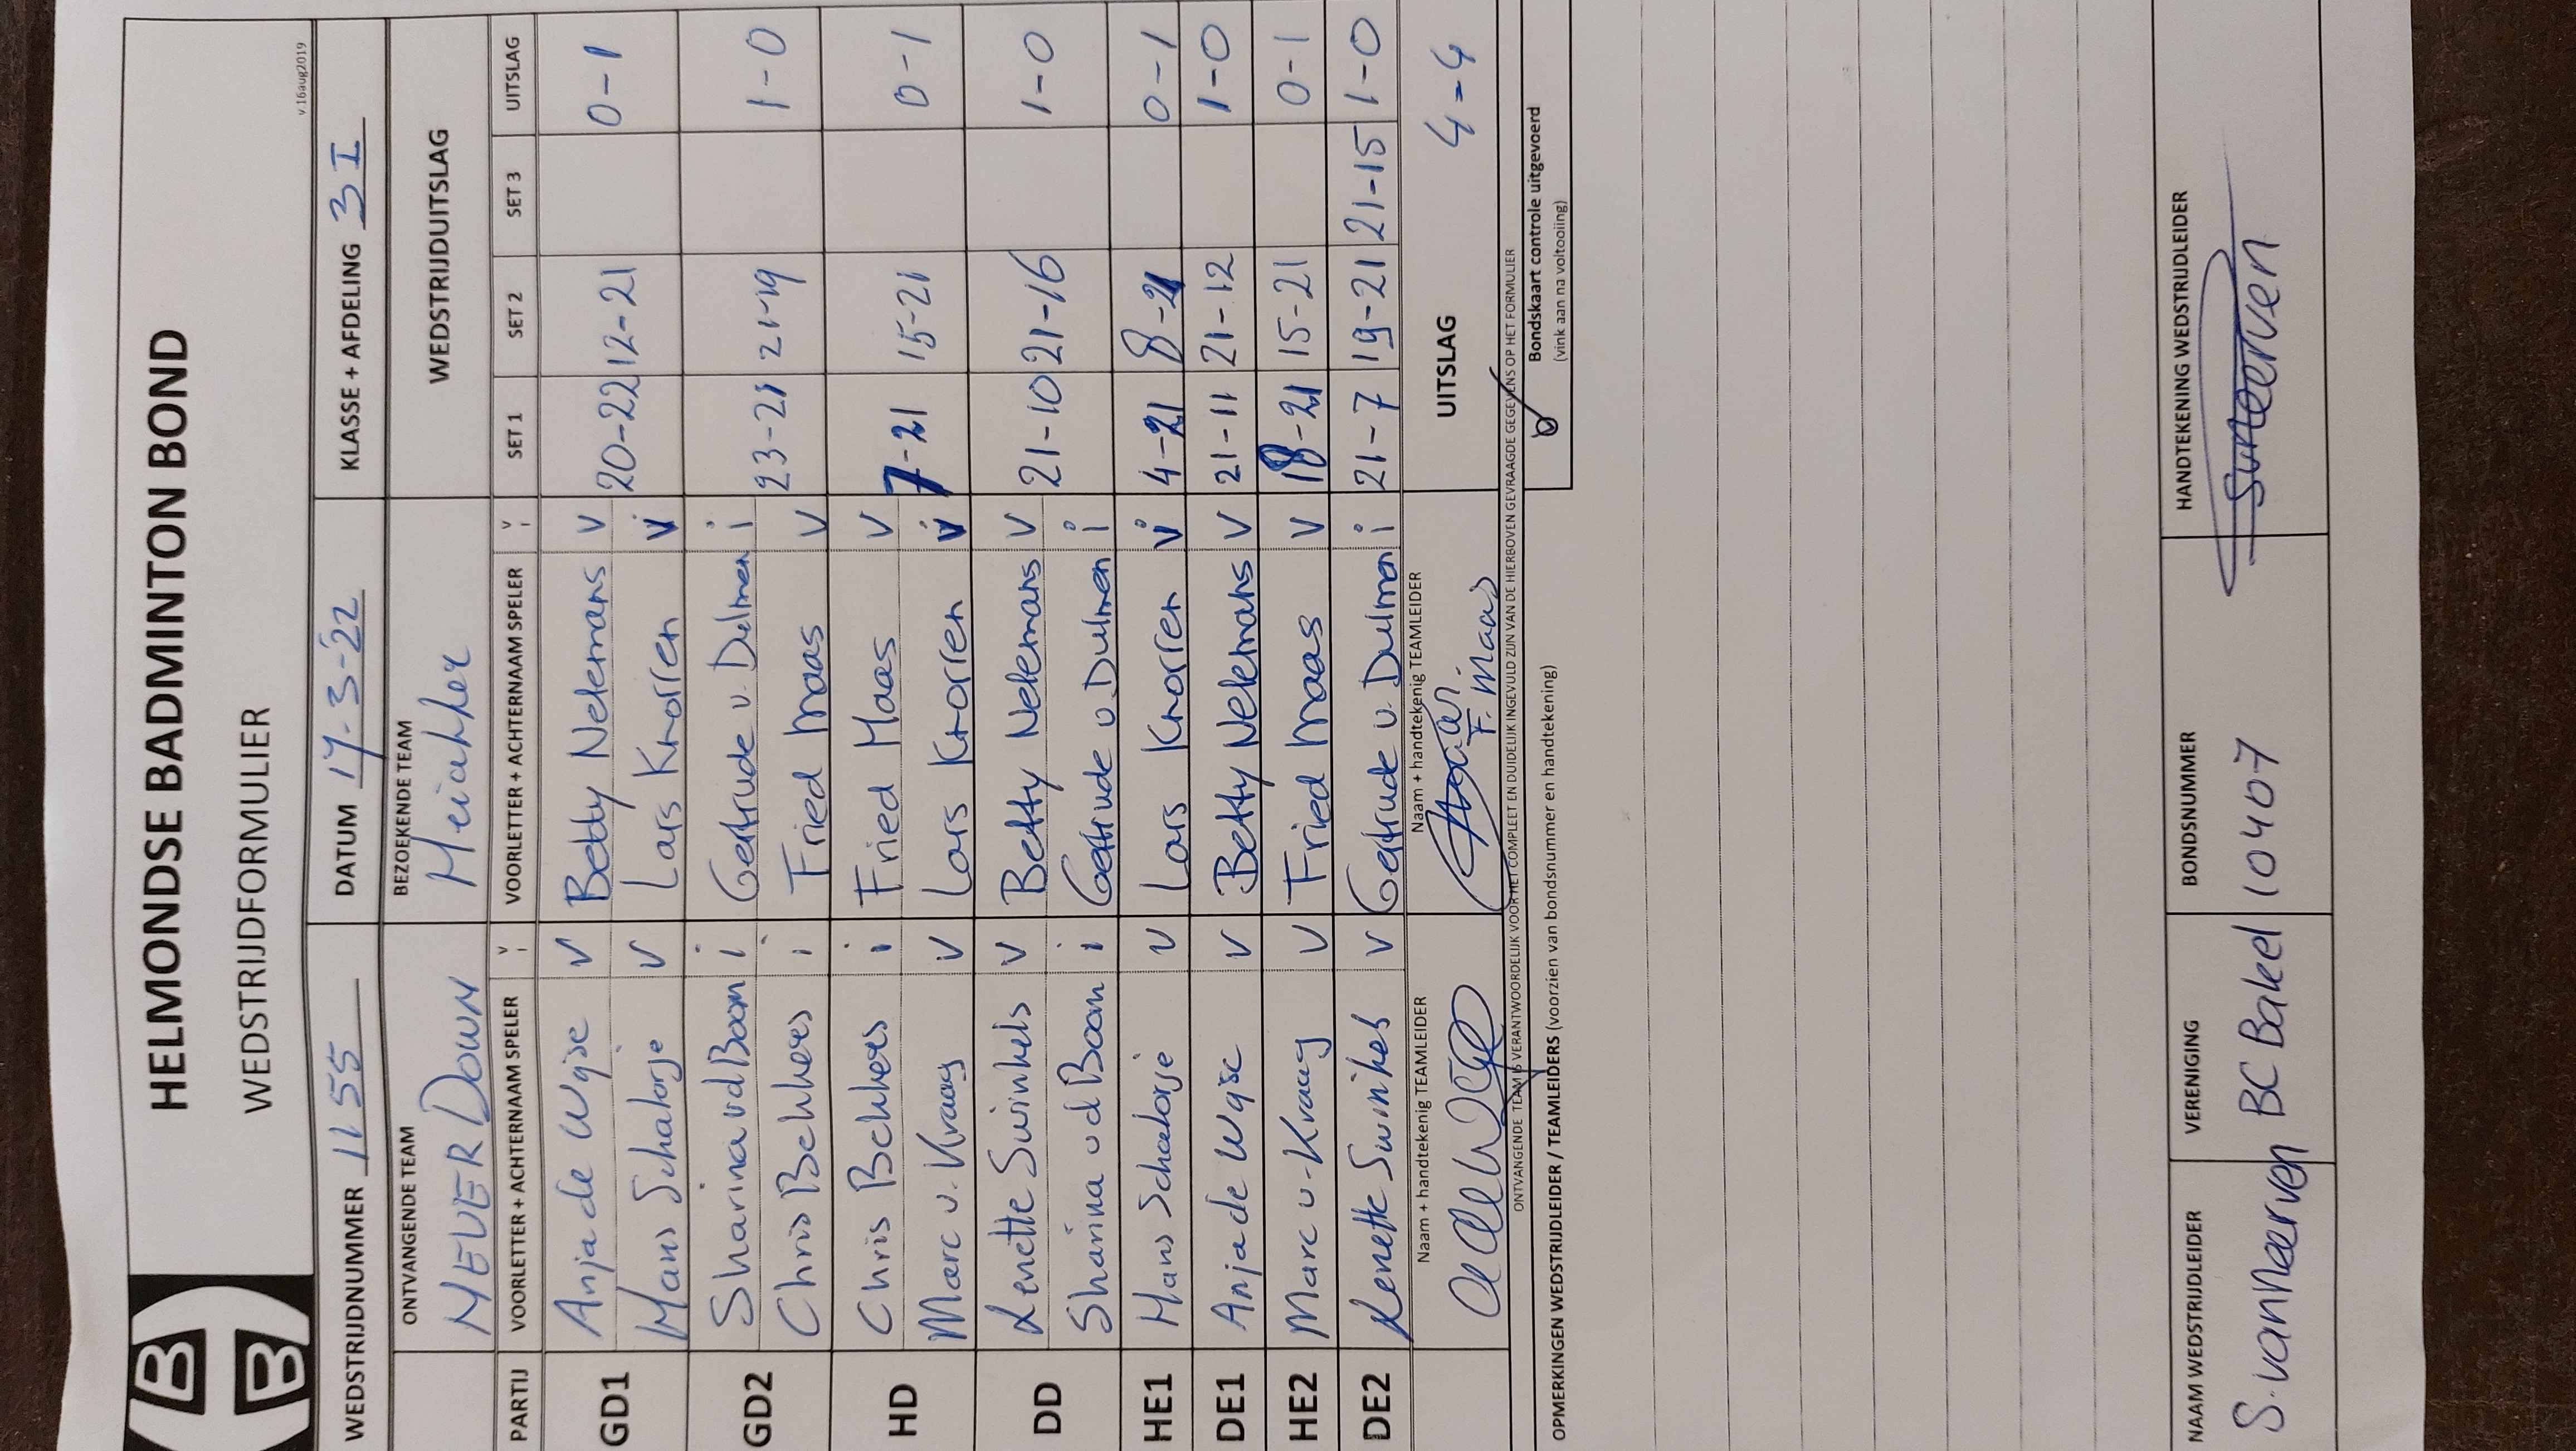 HELMONDSE BADMINTON BOND
WEDSTRIJDFORMULIER
v.16aug2019
WEDSTRIJDNUMMER 1155 DATUM 17-3-22 KLASSE + AFDELING 3 I
ONTVANGENDE TEAM BEZOEKENDE TEAM WEDSTRIJDUITSLAG
NEVER DOWN
PARTIJ VOORLETTER + ACHTERNAAM SPELER V I VOORLETTER + ACHTERNAAM SPELER V I SET 1 SET 2 SET 3 UITSLAG
GD1 Anja de Wijse V Betty Nelemans V 20-22 12-21 0-1
Hans Schatorje V Lars Knorren
GD2 Sharina vd Boom i Gertrude v. Dulmen i 23-21 21-19 1-0
Chris i Fried Maas V
HD Chris i Fried Maas V 7-21 15-21 0-1
Marc v. Kraaij V Lars Knorren
DD Lenette Swinkels V Betty Nelemans V 21-10 21-16 1-0
Sharina vd Boom i Gertrude v. Dulmen i
HE1 Hans Schatorje V Lars Knorren 4-21 8-21 0-1
DE1 Anja de Wijse V Betty Nelemans V 21-11 21-12 1-0
HE2 Marc v. Kraaij V Fried Maas V 18-21 15-21 0-1
DE2 Lenette Swinkels V Gertrude v. Dulmen i 21-7 19-21 21-15 1-0
Naam + handtekenig TEAMLEIDER Naam + handtekenig TEAMLEIDER UITSLAG 4-4
F. Maas
ONTVANGENDE TEAM IS VERANTWOORDELIJK VOOR HET COMPLEET EN DUIDELIJK INGEVULD ZIJN VAN DE HIERBOVEN GEVRAAGDE GEGEVENS OP HET FORMULIER
Bondskaart controle uitgevoerd
(vink aan na voltooiing)
OPMERKINGEN WEDSTRIJDLEIDER / TEAMLEIDERS (voorzien van bondsnummer en handtekening)
NAAM WEDSTRIJDLEIDER VERENIGING BONDSNUMMER HANDTEKENING WEDSTRIJDLEIDER
S. van Neerven BC Bakel 10407 SvNeerven